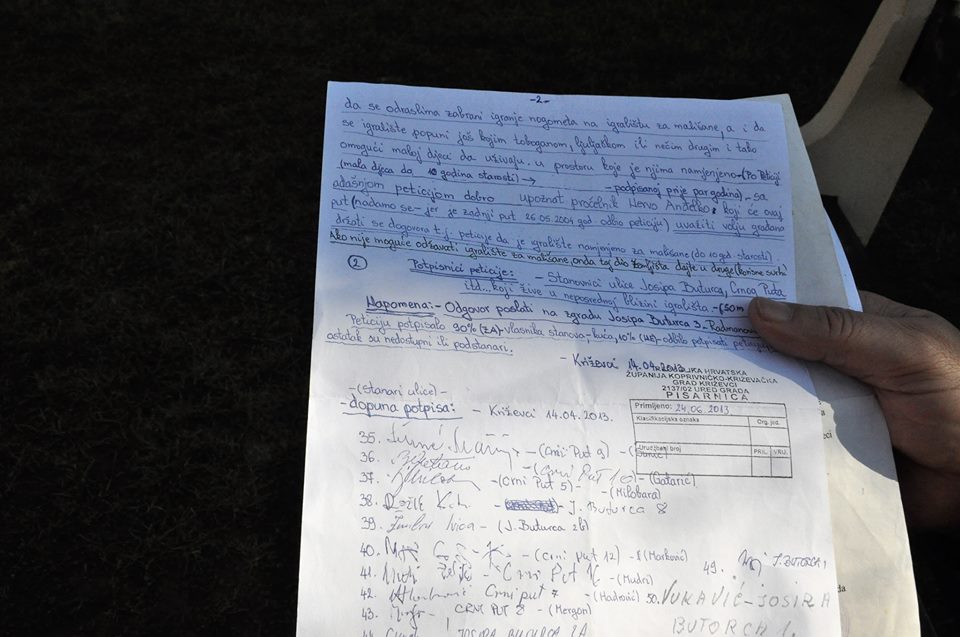 -2-
da se odraslima zabrani igranje nogometa na igralištu za mališane, a i da
se igralište popuni još kojim toboganom, ljuljačkom ili nečim drugim i tako
omogući maloj djeci da uživaju u prostoru koje je njima namjenjeno-(Po Peticiji
(mala djeca do 10 godina starosti) → - podpisanoj prije par godina)- sa
adašnjom peticijom dobro upoznat pročelnik Hervo Anđelko, koji će ovaj
put (nadamo se- jer je zadnji put 26.05.2004 god. odbio peticiju) uvažiti volju građana
držati se dogovora t.j. peticije da je igralište namjenjeno za mališane (do 10 god. starosti).
Ako nije moguće održavati igralište za mališane, onda taj dio zemljišta dajte u druge (korisne svrhe
2 Potpisnici peticije: - Stanovnici ulica Josipa Buturca, Crnog Puta
itd... koji žive u neposrednoj blizini igrališta.-(50m
Napomena:- Odgovor poslati na zgradu Josipa Buturca 3.
Peticiju potpisalo 90% (ZA)- vlasnika stanova-kuća, 10% (NE)- odbilo potpisati peticiju
ostatak su nedostupni ili podstanari.
- Križevci 14.04.2013.
REPUBLIKA HRVATSKA
ŽUPANIJA KOPRIVNIČKO-KRIŽEVAČKA
GRAD KRIŽEVCI
2137/02 URED GRADA
PISARNICA
Primljeno: 24.06.2013
Klasifikacijska oznaka Org. jed.
Urudžbeni broj PRIL. VRIJ.
-(stanari ulice)-
-dopuna potpisa: - Križevci 14.04.2013.
35. -(Crni Put 9)
36. -(Crni Put 10)-(Gatarić)
37. -(Crni Put 5) - (Milobara)
38. - J. Buturca 8
39. Ivica - (J. Buturca 2b)
40. -(Crni put 12) -(Marković)
41. - Crni Put -(Mudri)
42. Crni put 7 -(Hadrović)
43. CRNI PUT 8 -(Mergon)
44. JOSIPA BUTURCA 2A
49. J. BUTORCA 1
50. VUKAVIĆ-JOSIPA
BUTORCA 1